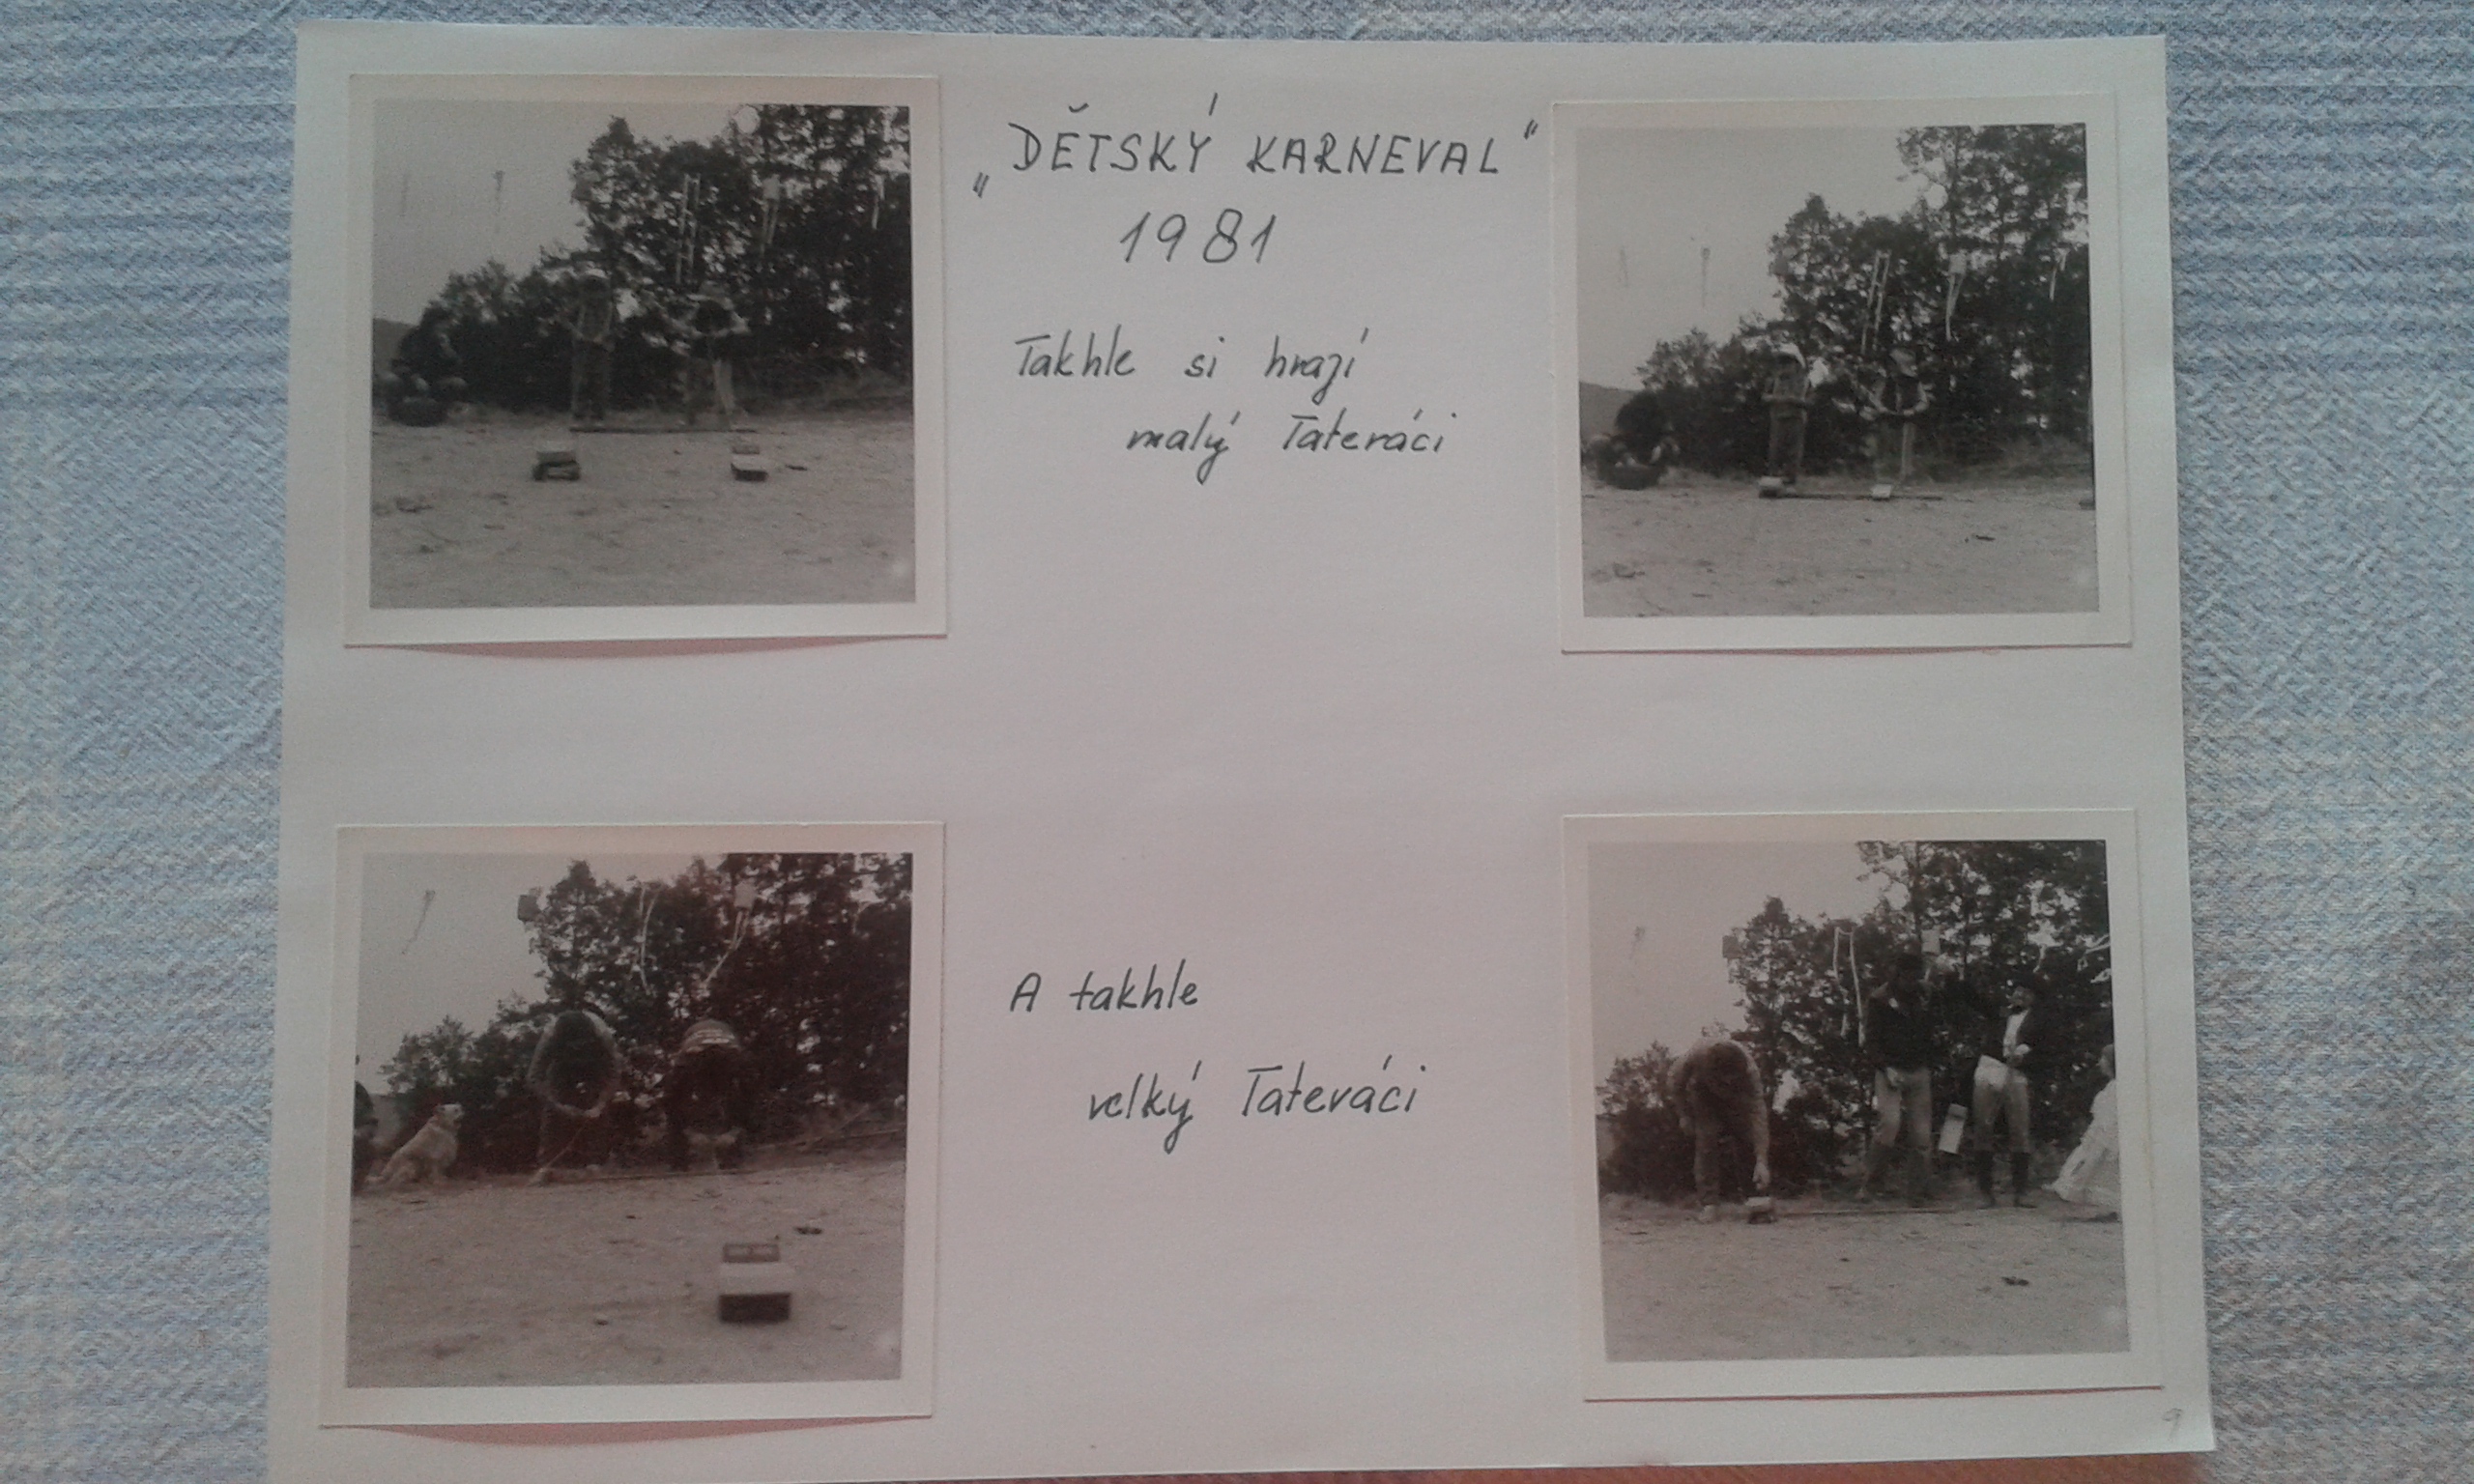 „DĚTSKÝ KARNEVAL"
1981
Takhle si hrají
malý Tateráci
A takhle
velký Tateráci
9